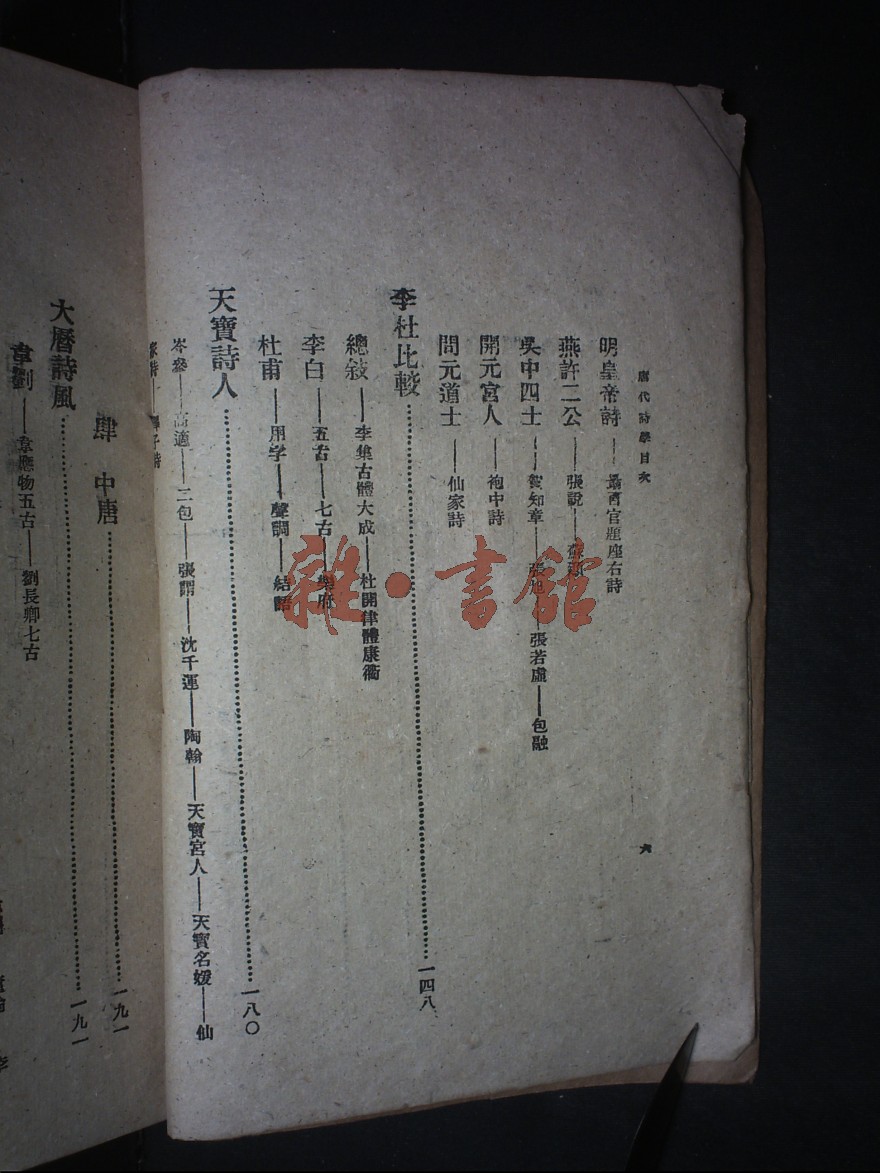 唐代詩學目次
六
明皇帝詩——最舊官題座右詩
燕許二公——張說——蘇頲
吳中四士——賀知章——張旭——張若虛——包融
開元宮人——袍中詩
開元道士——仙家詩
李杜比較……一四八
總敍——李集古體大成——杜開律體康衢
李白——五古——七古——樂府
杜甫——用字——聲調——結語
天寶詩人……一八〇
岑參——高適——三包——張謂——沈千運——陶翰——天寶宮人——天寶名媛——仙
家詩——釋子詩
肆 中唐……一九一
大曆詩風……一九一
韋劉——韋應物五古——劉長卿七古
雜·書館